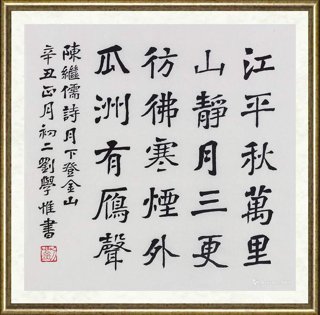 江平秋萬里
山靜月三更
彷彿寒煙外
瓜洲有鴈聲
陳繼儒詩月下登金山
辛丑正月初二劉學惟書